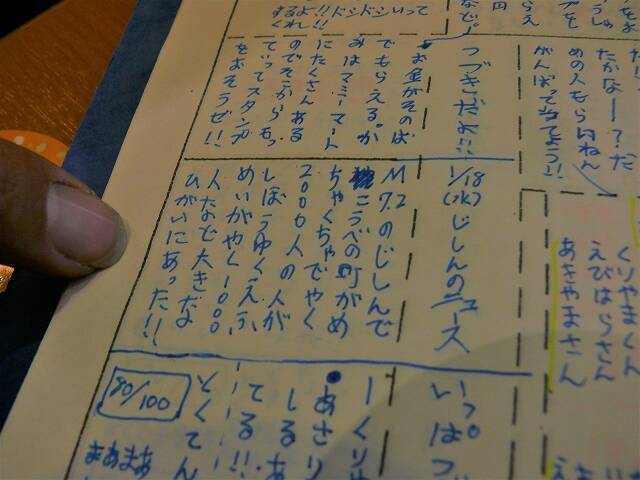 たかなー?だ
めの人もらいねん
がんばって当てよっ!!
つづきだよ!!
お金がそのば
でもらえる。が
みはマミーマート
にたくさんある
のでそこからもっ
ていってスタンプ
をおそうぜ!!
するよ!!ドシドシいって
くれ!!
くりやまくん
えびはらさん
あきやまさん
1/18(水)じしんのニュース
M7.2のじしんで
こうべの町がめ
ちゃくちゃでやく
2000人の人が
しぼうゆくえふ
めいがやく1000
人などと大きな
ひがいにあった!!
いっぱつ
ーくり
あさり
しるあ
てる!!
とくてん
90/100
まあまあ